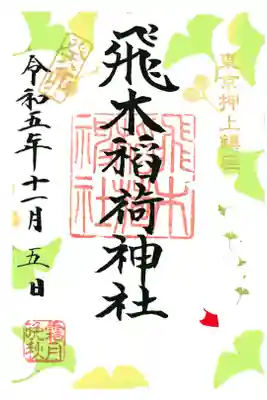 東京押上鎮座
飛木稲荷神社
飛木稲荷神社
令和五年十一月五日
霜月
晩秋